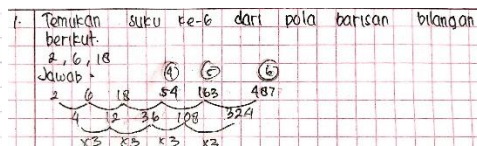 1. Temukan suku ke-6 dari pola barisan bilangan
berikut.
2, 6, 18
Jawab :
④ ⑤ ⑥
2 6 18 54 163 487
4 12 36 108 324
x3 x3 x3 x3